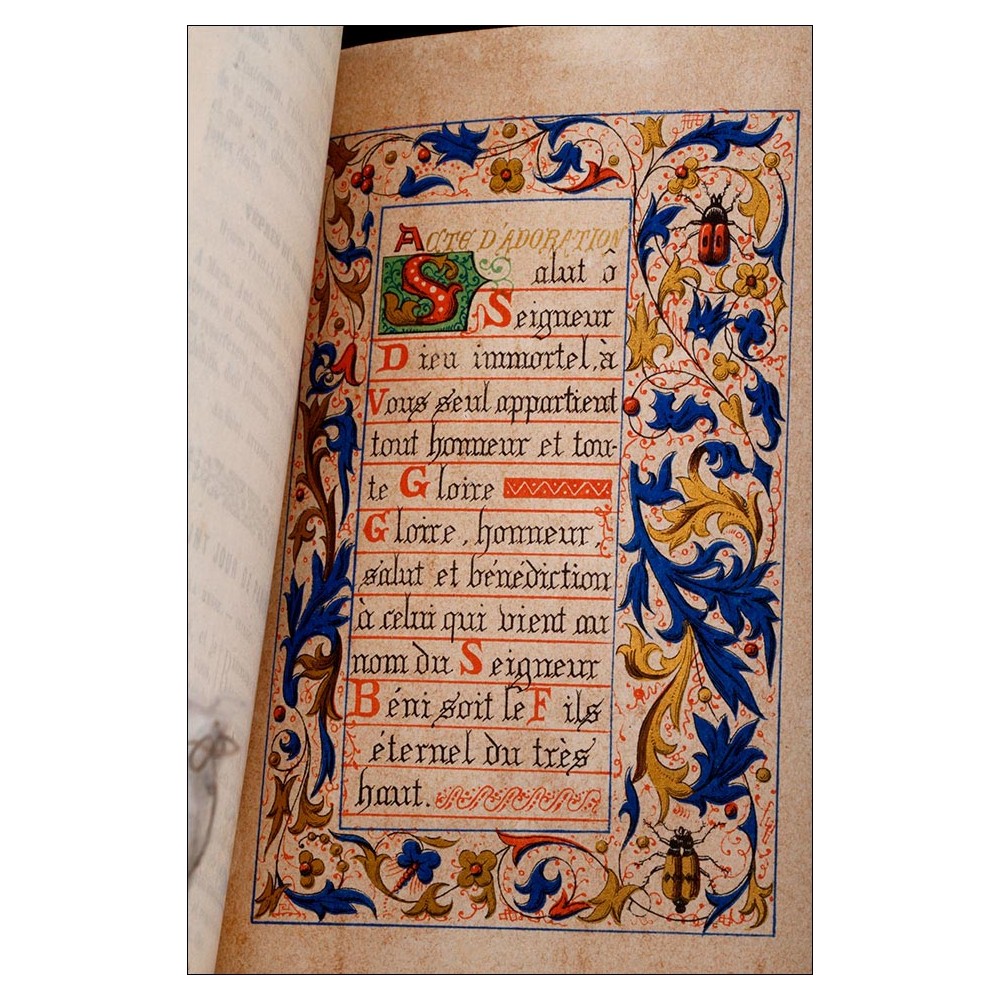 ACTE D'ADORATION
Salut ô
Seigneur
Dieu immortel, à
Vous seul appartient
tout honneur et tou-
te Gloire
Gloire, honneur
salut et bénédiction
à celui qui vient au
nom du Seigneur
Béni soit le Fils
éternel du très
haut.